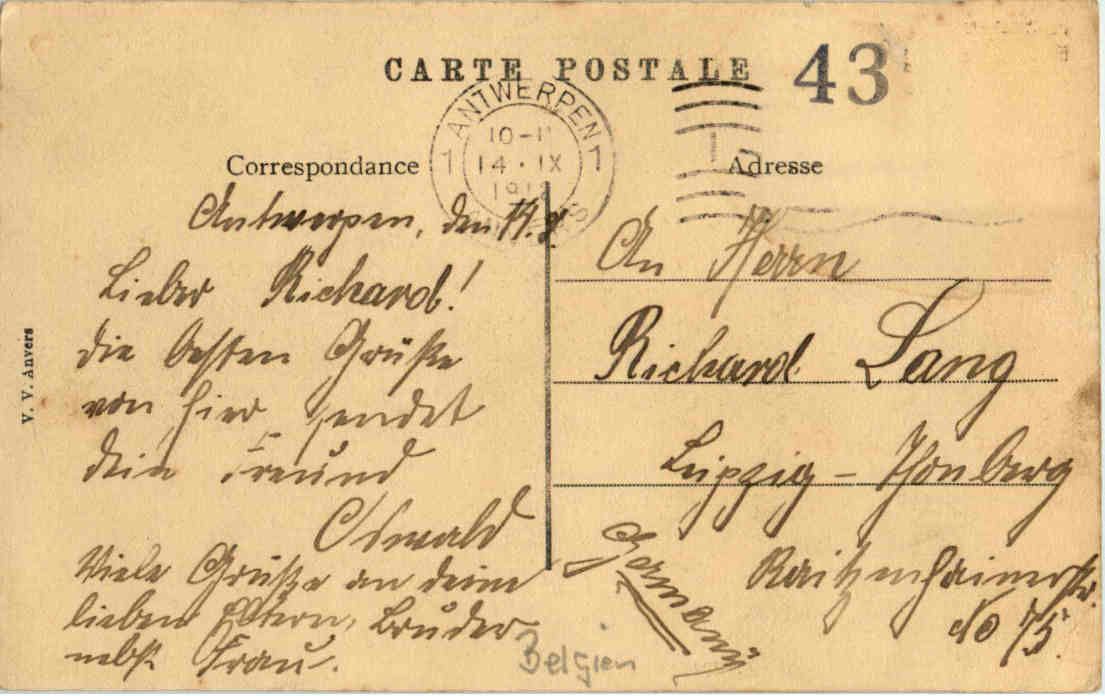 CARTE POSTALE
43
ANTWERPEN
1 1
10-11
14 · IX
Correspondance
Adresse
V. V. Anvers
Antwerpen, den
Lieber Richard!
die besten Grüße
von hier sendet
dein Freund
Oswald
Viele Grüße an deine
lieben Eltern, Bruder
nebst Frau.
An Herrn
Richard Lang
Leipzig - Thonberg
Raitzenhainerstr.
No 75.
Germany
Belgien